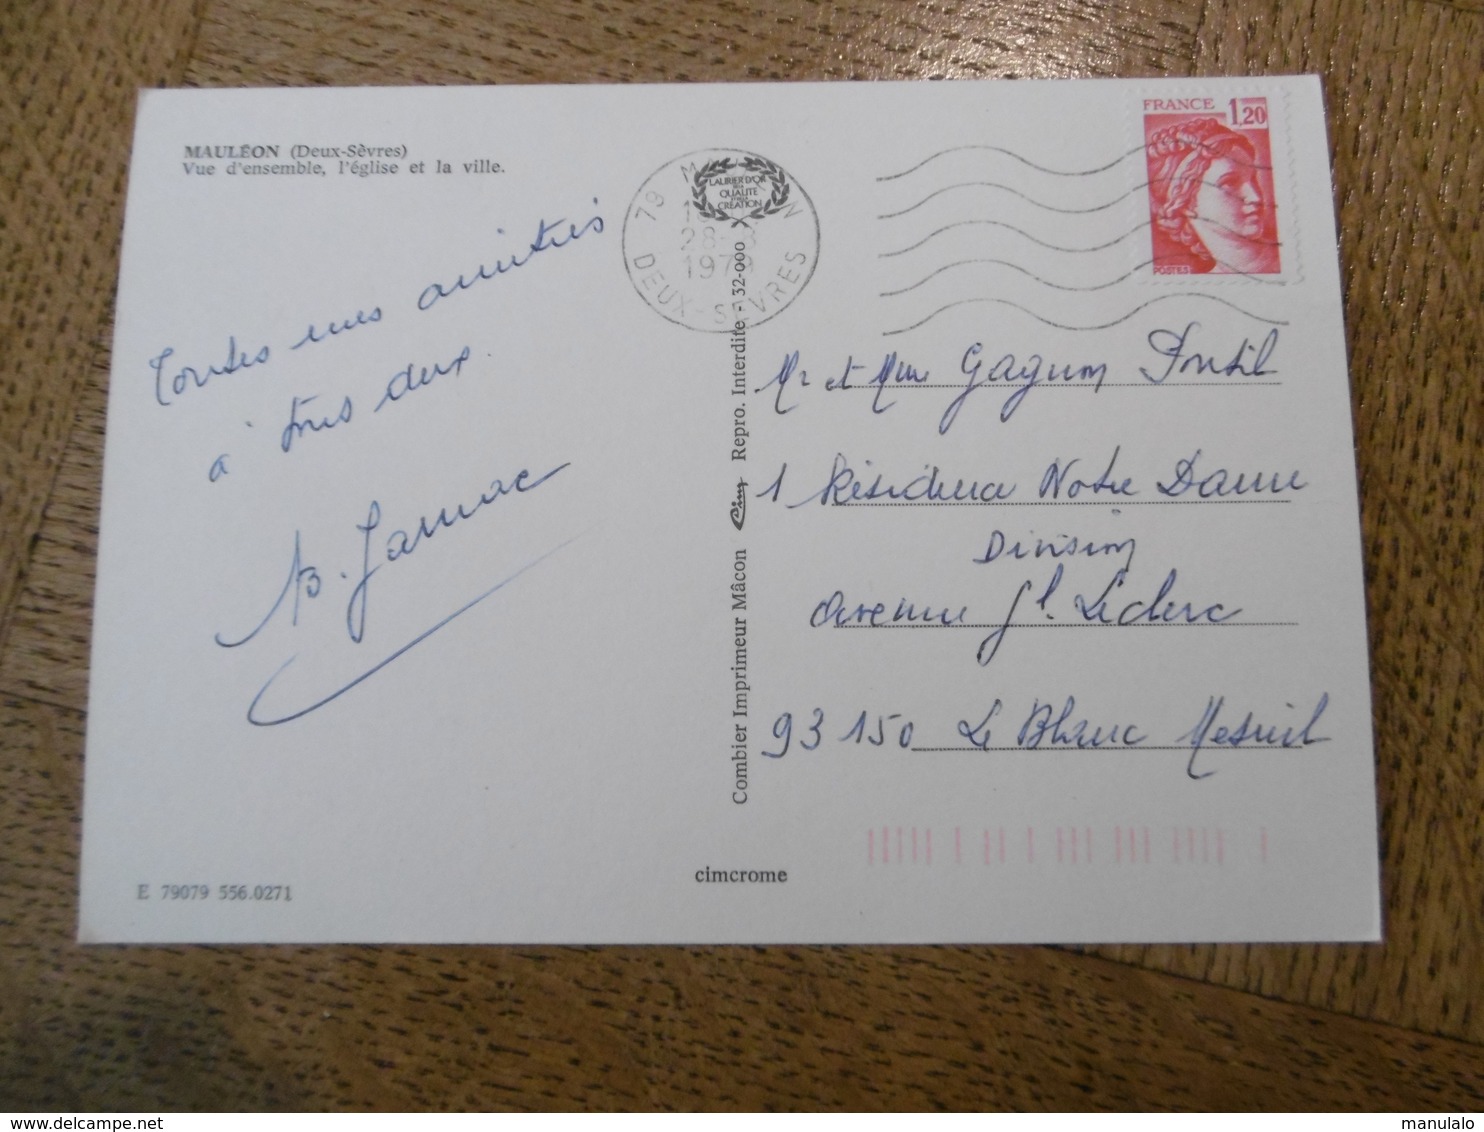 MAULÉON (Deux-Sèvres)
Vue d'ensemble, l'église et la ville.
Toutes mes amitiés
à tous deux.
B. Jarnac
E 79079 556.0271
Combier Imprimeur Mâcon Cim Repro. Interdite - 32-000
cimcrome
79
28
1979
DEUX-SEVRES
LAURIER D'OR
DE LA
QUALITE
CREATION
FRANCE 1,20
POSTES
Mr et Mme Gagnon
1 Résidence Notre Dame
Division
avenue Gl. Leclerc
93150 Le Blanc Mesnil
www.delcampe.net
manulalo